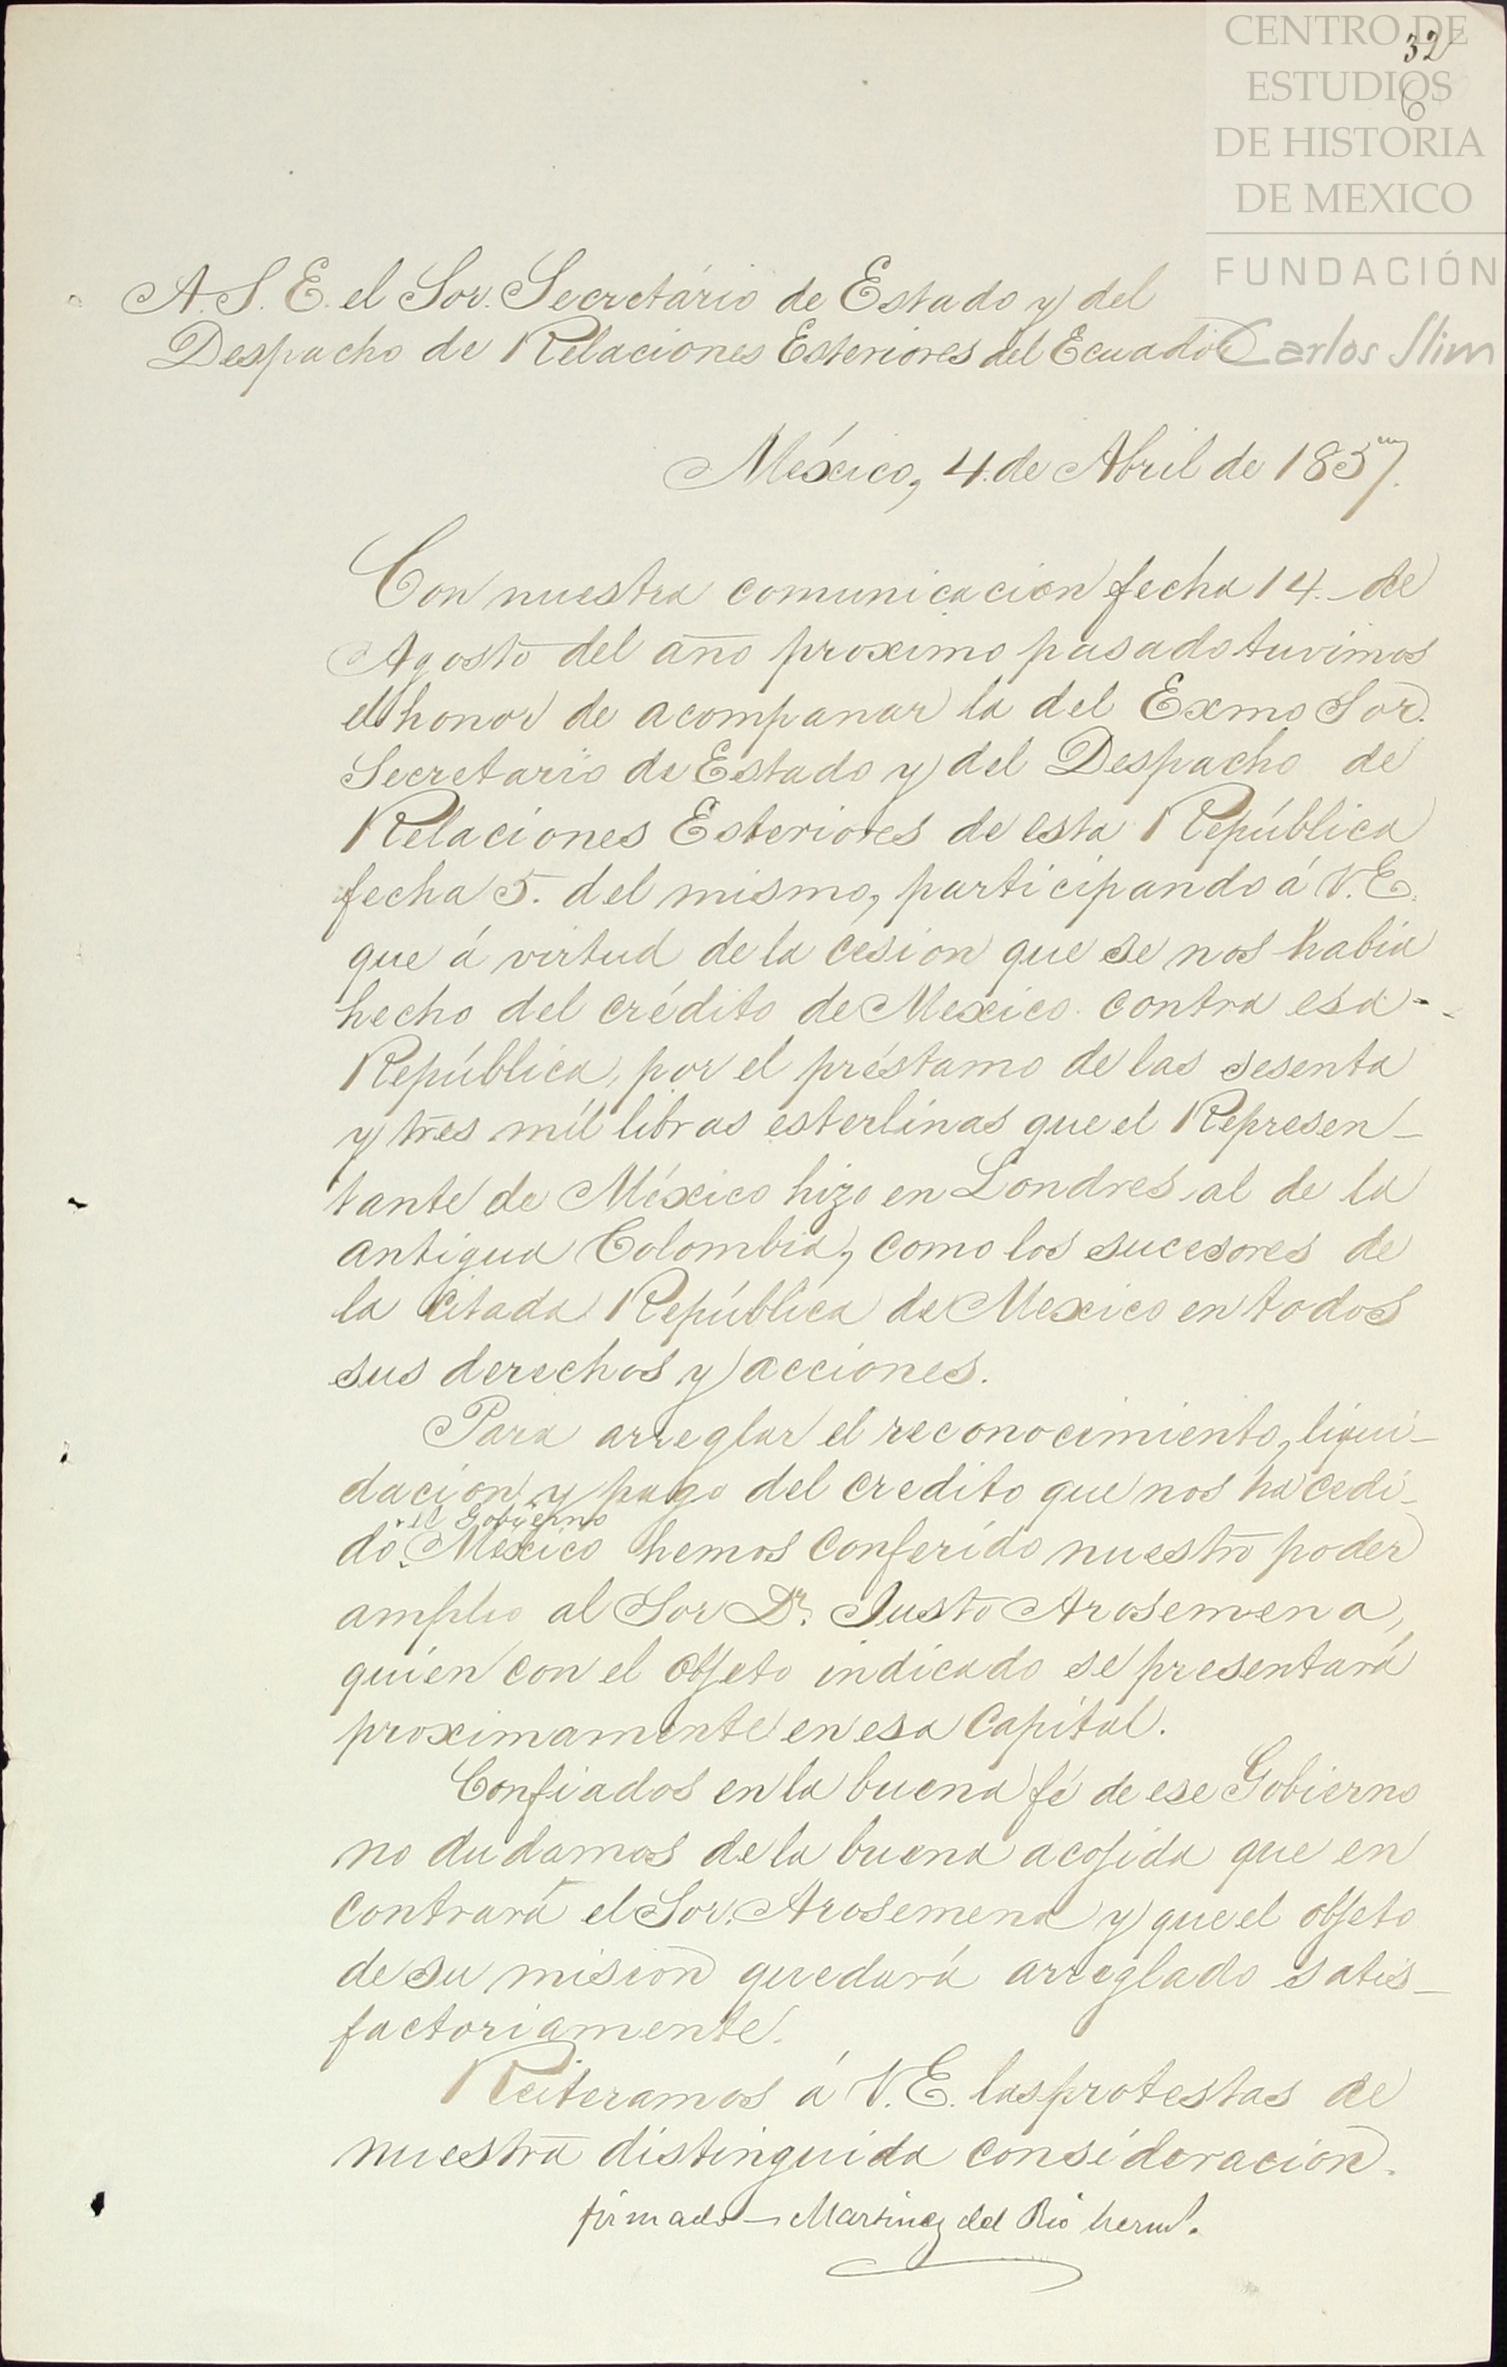 CENTRO DE
ESTUDIOS
DE HISTORIA
DE MEXICO
FUNDACIÓN
Carlos Slim
32
6
A. S. E. el Sor. Secretário de Estado y del
Despacho de Relaciones Esteriores del Ecuador
México, 4. de Abril de 1857.
Con nuestra comunicacion fecha 14. de
Agosto del año proximo pasado tuvimos
el honor de acompanar la del Exmo Sor.
Secretario de Estado y del Despacho de
Relaciones Esteriores de esta República
fecha 5. del mismo, participando á V. E.
que á virtud de la cesion que se nos habia
hecho del crédito de Mexico contra esa
República, por el préstamo de las sesenta
y tres mil libras esterlinas que el Represen-
tante de México hizo en Londres al de la
antigua Colombia, como los sucesores de
la citada República de Mexico en todos
sus derechos y acciones.
Para arreglar el reconocimiento, liqui-
dacion y pago del credito que nos ha cedi-
el Gobierno
do México hemos conferido nuestro poder
amplio al Sor Dr. Justo Arosemena,
quien con el objeto indicado se presentará
proximamente en esa Capital.
Confiados en la buena fé de ese Gobierno
no dudamos de la buena acojida que en
contrará el Sor. Arosemena y que el objeto
de su mision quedará arreglado satis-
factoriamente.
Reiteramos á V. E. las protestas de
nuestra distinguida consideracion.
firmado - Martinez del Rio herms.